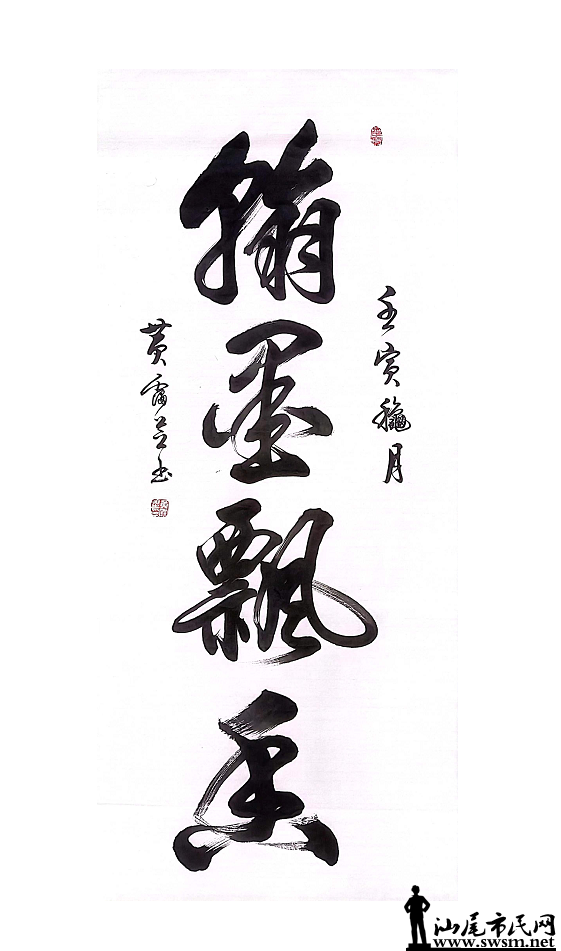 壬寅龝月
翰墨飘香
黄雷书
汕尾市民网
www.swsm.net